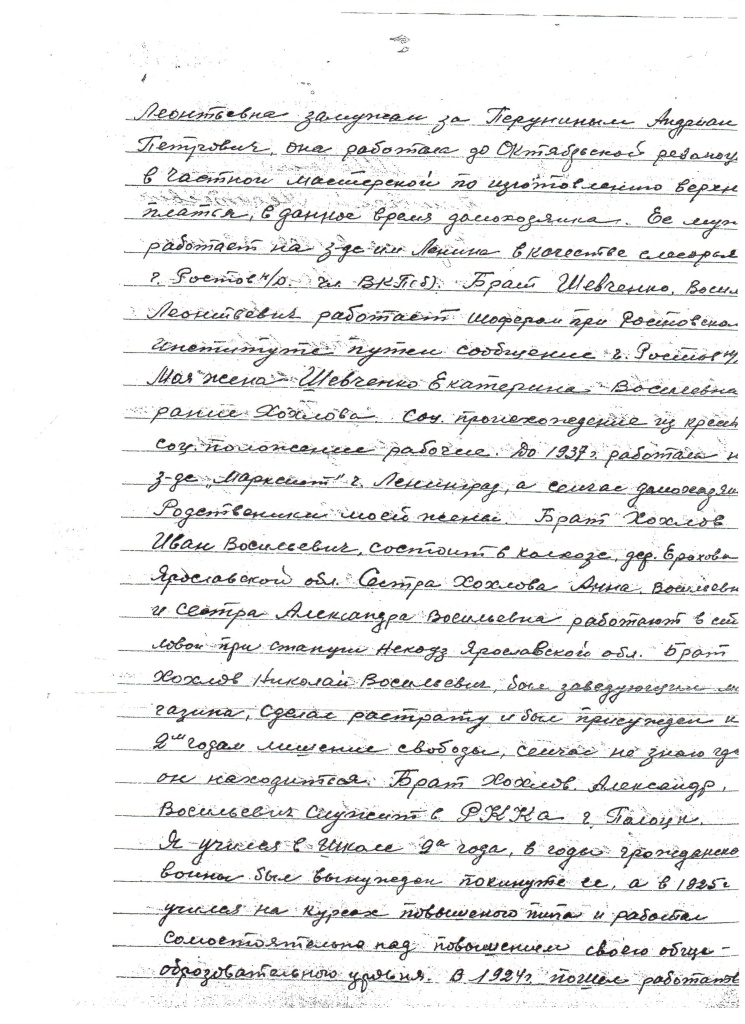 Леонтьевна замужем за Перуниным Андриан
Петрович, она работала до Октябрьской революц
в частной мастерской по изготовлению верхн
платья, в данное время домохозяйка. Ее муж
работает на з-де им Ленина в качестве слесаря
г. Ростов н/д. чл ВКП(б). Брат Шевченко, Васил
Леонтьевич работает шофером при Ростовском
Институте путей сообщение г. Ростов н/
Моя жена Шевченко Екатерина Восильевна
ранее Хохлова. Соц. происхождение из крест
соц. положение рабочие. До 1937 г. работала н
з-де "Марксист" г. Ленинград, а сейчас домохозяй
Родственики моей жены. Брат Хохлов
Иван Восильевич, состоит в колхозе, дер. Ерохова
Ярославской обл. Сестра Хохлова Анна Восильевн
и сестра Александра Восильевна работают в сто
ловой при станции Некоуз Ярославской обл. Брат
Хохлов Николай Восильевич, был заведующим ма
газина, сделал растрату и был присужден к
2м годам лишение свободы, сейчас не знаю где
он находится. Брат Хохлов Александр
Восильевич служит в РККА г. Палоцк.
Я учился в школе 2а года, в годы гражданско
войны был вынужден покинуть ее, а в 1925 г
учился на курсах повышеного типа и работал
самостоятельно над повышением своего обще-
оброзовательного уровня. В 1924 г пошел работать